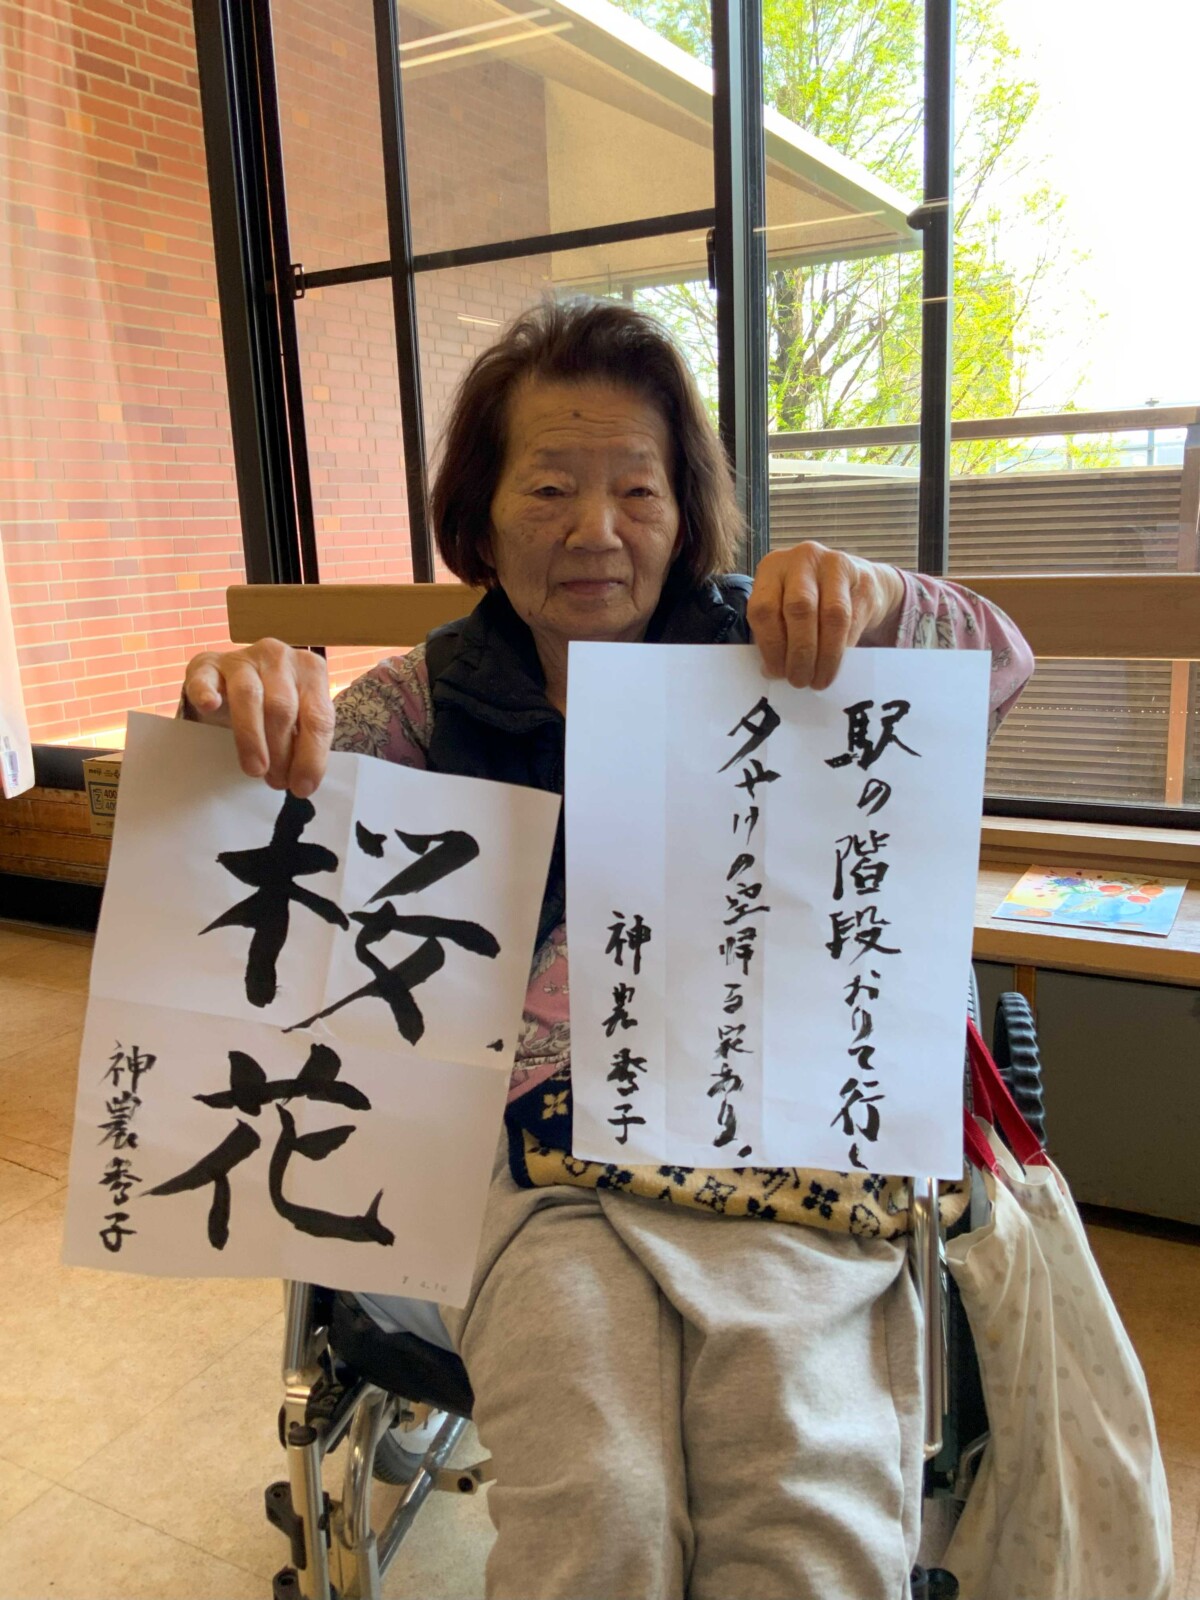 桜
花
神農秀子
7.4.10
駅の階段おりて行く
夕やけの空帰る家あり。
神農秀子
400